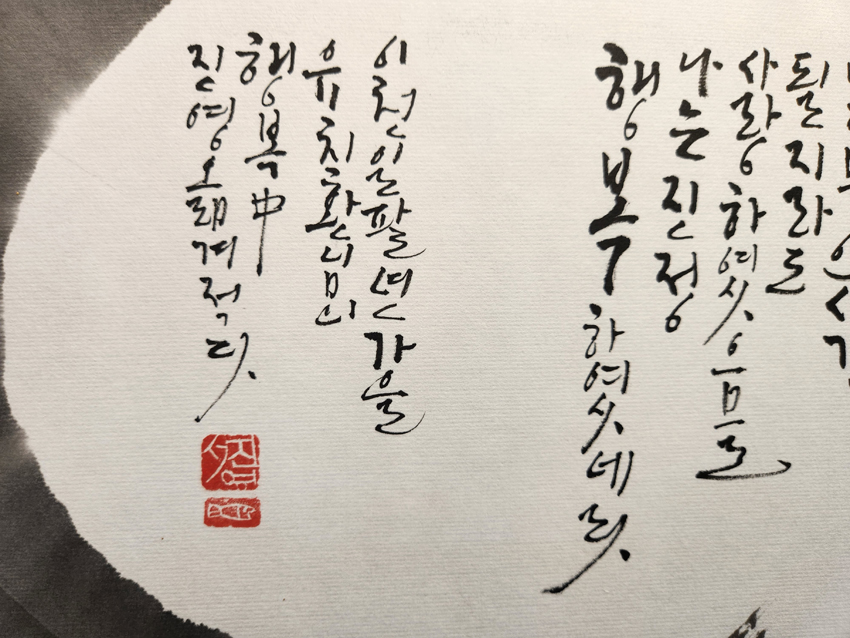 될지라도
사랑하였으므로
나는 진정
행복하였네라
이천일팔년 가을
유치환님의
행복 中
진영 옮겨 적다